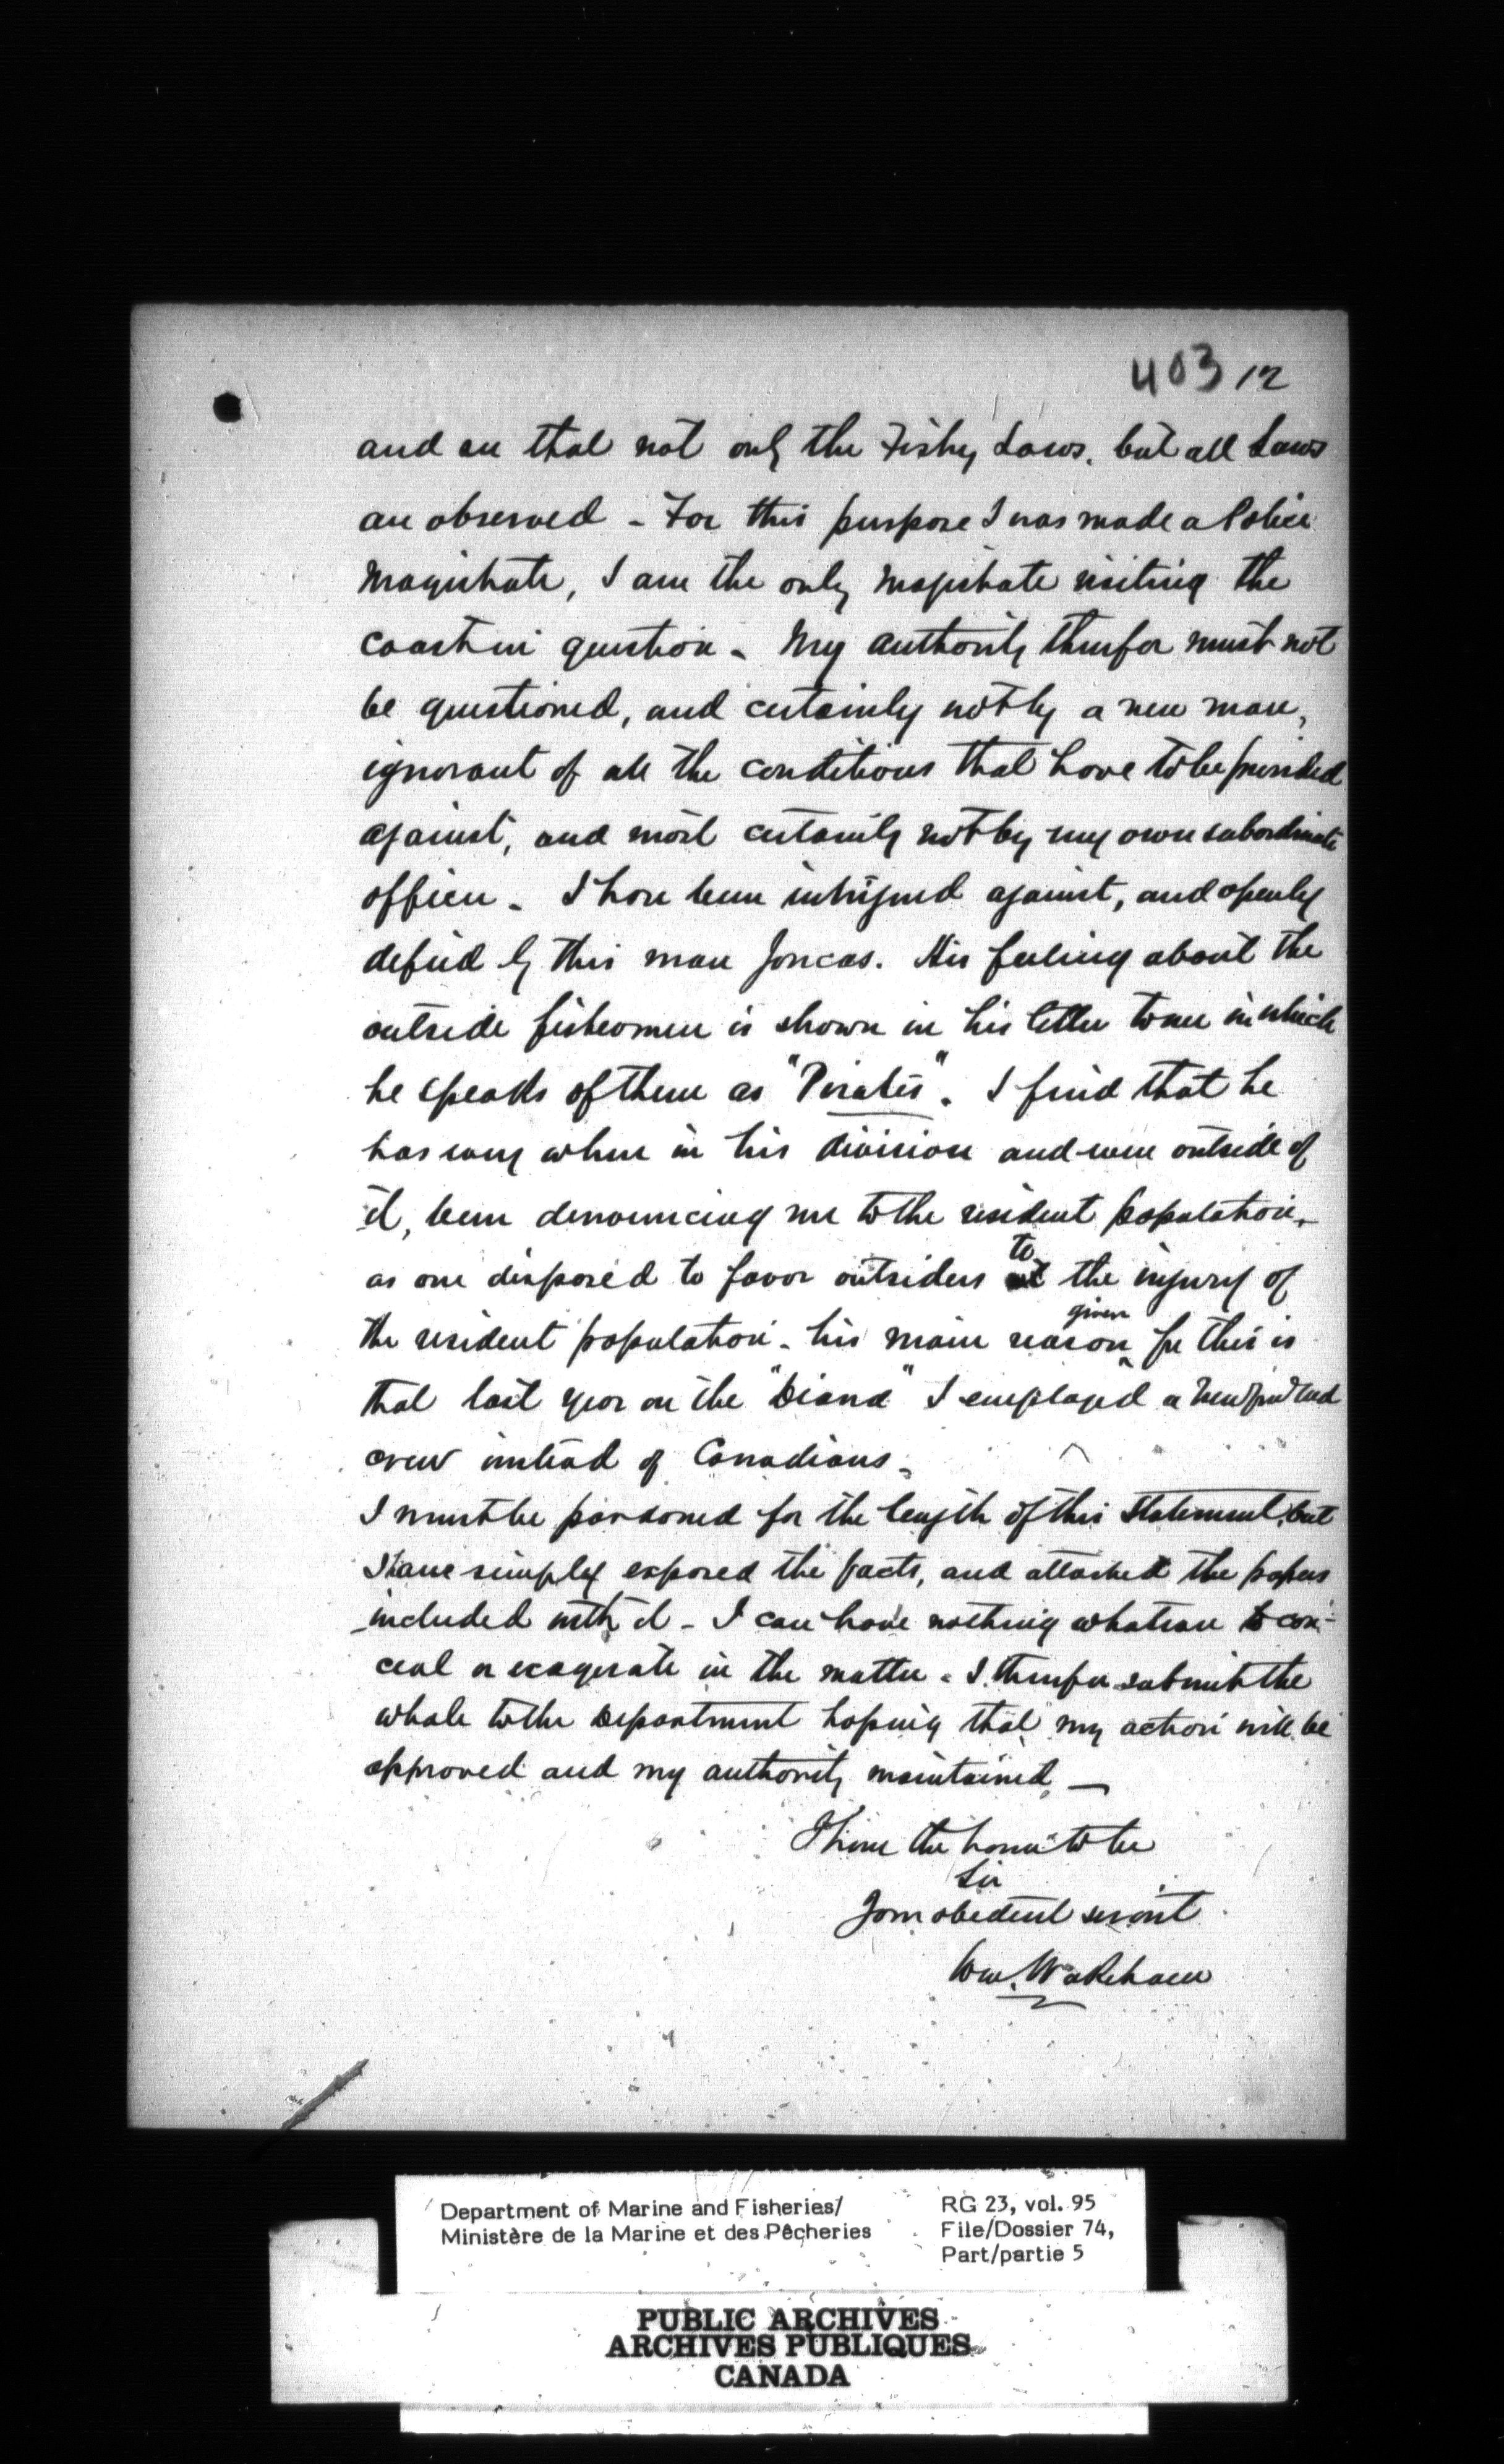 403 12
and see that not only the Fishy Laws, but all Laws
are observed - For this purpose I was made a Police
Magistrate, I am the only Magistrate visiting the
coast in question - My authority therefor must not
be questioned, and certainly not by a new man,
ignorant of all the conditions that have to be provided
against, and most certainly not by my own subordinate
officer - I have been intrigued against, and openly
defied by this man Joncas. His feeling about the
outside fishermen is shown in his letter to me in which
he speaks of them as "Pirates". I find that he
has every where in his division and even outside of
it, been denouncing me to the resident population,
as one disposed to favor outsiders to the injury of
the resident population - his main reason given for this is
that last year on the "Diana" I employed a Newfoundland
crew instead of Canadians -
I must be pardoned for the length of this statement, but
I have simply exposed the facts, and attached the papers
included with it - I can have nothing whatever to con-
ceal or exagerate in the matter - I therefor submit the
whole to the Department hoping that my action will be
approved and my authority maintained -
I have the honor to be
Sir
Your obedient servant
Wm. Wakeham
Department of Marine and Fisheries/
Ministère de la Marine et des Pêcheries
RG 23, vol. 95
File/Dossier 74,
Part/partie 5
PUBLIC ARCHIVES
ARCHIVES PUBLIQUES
CANADA